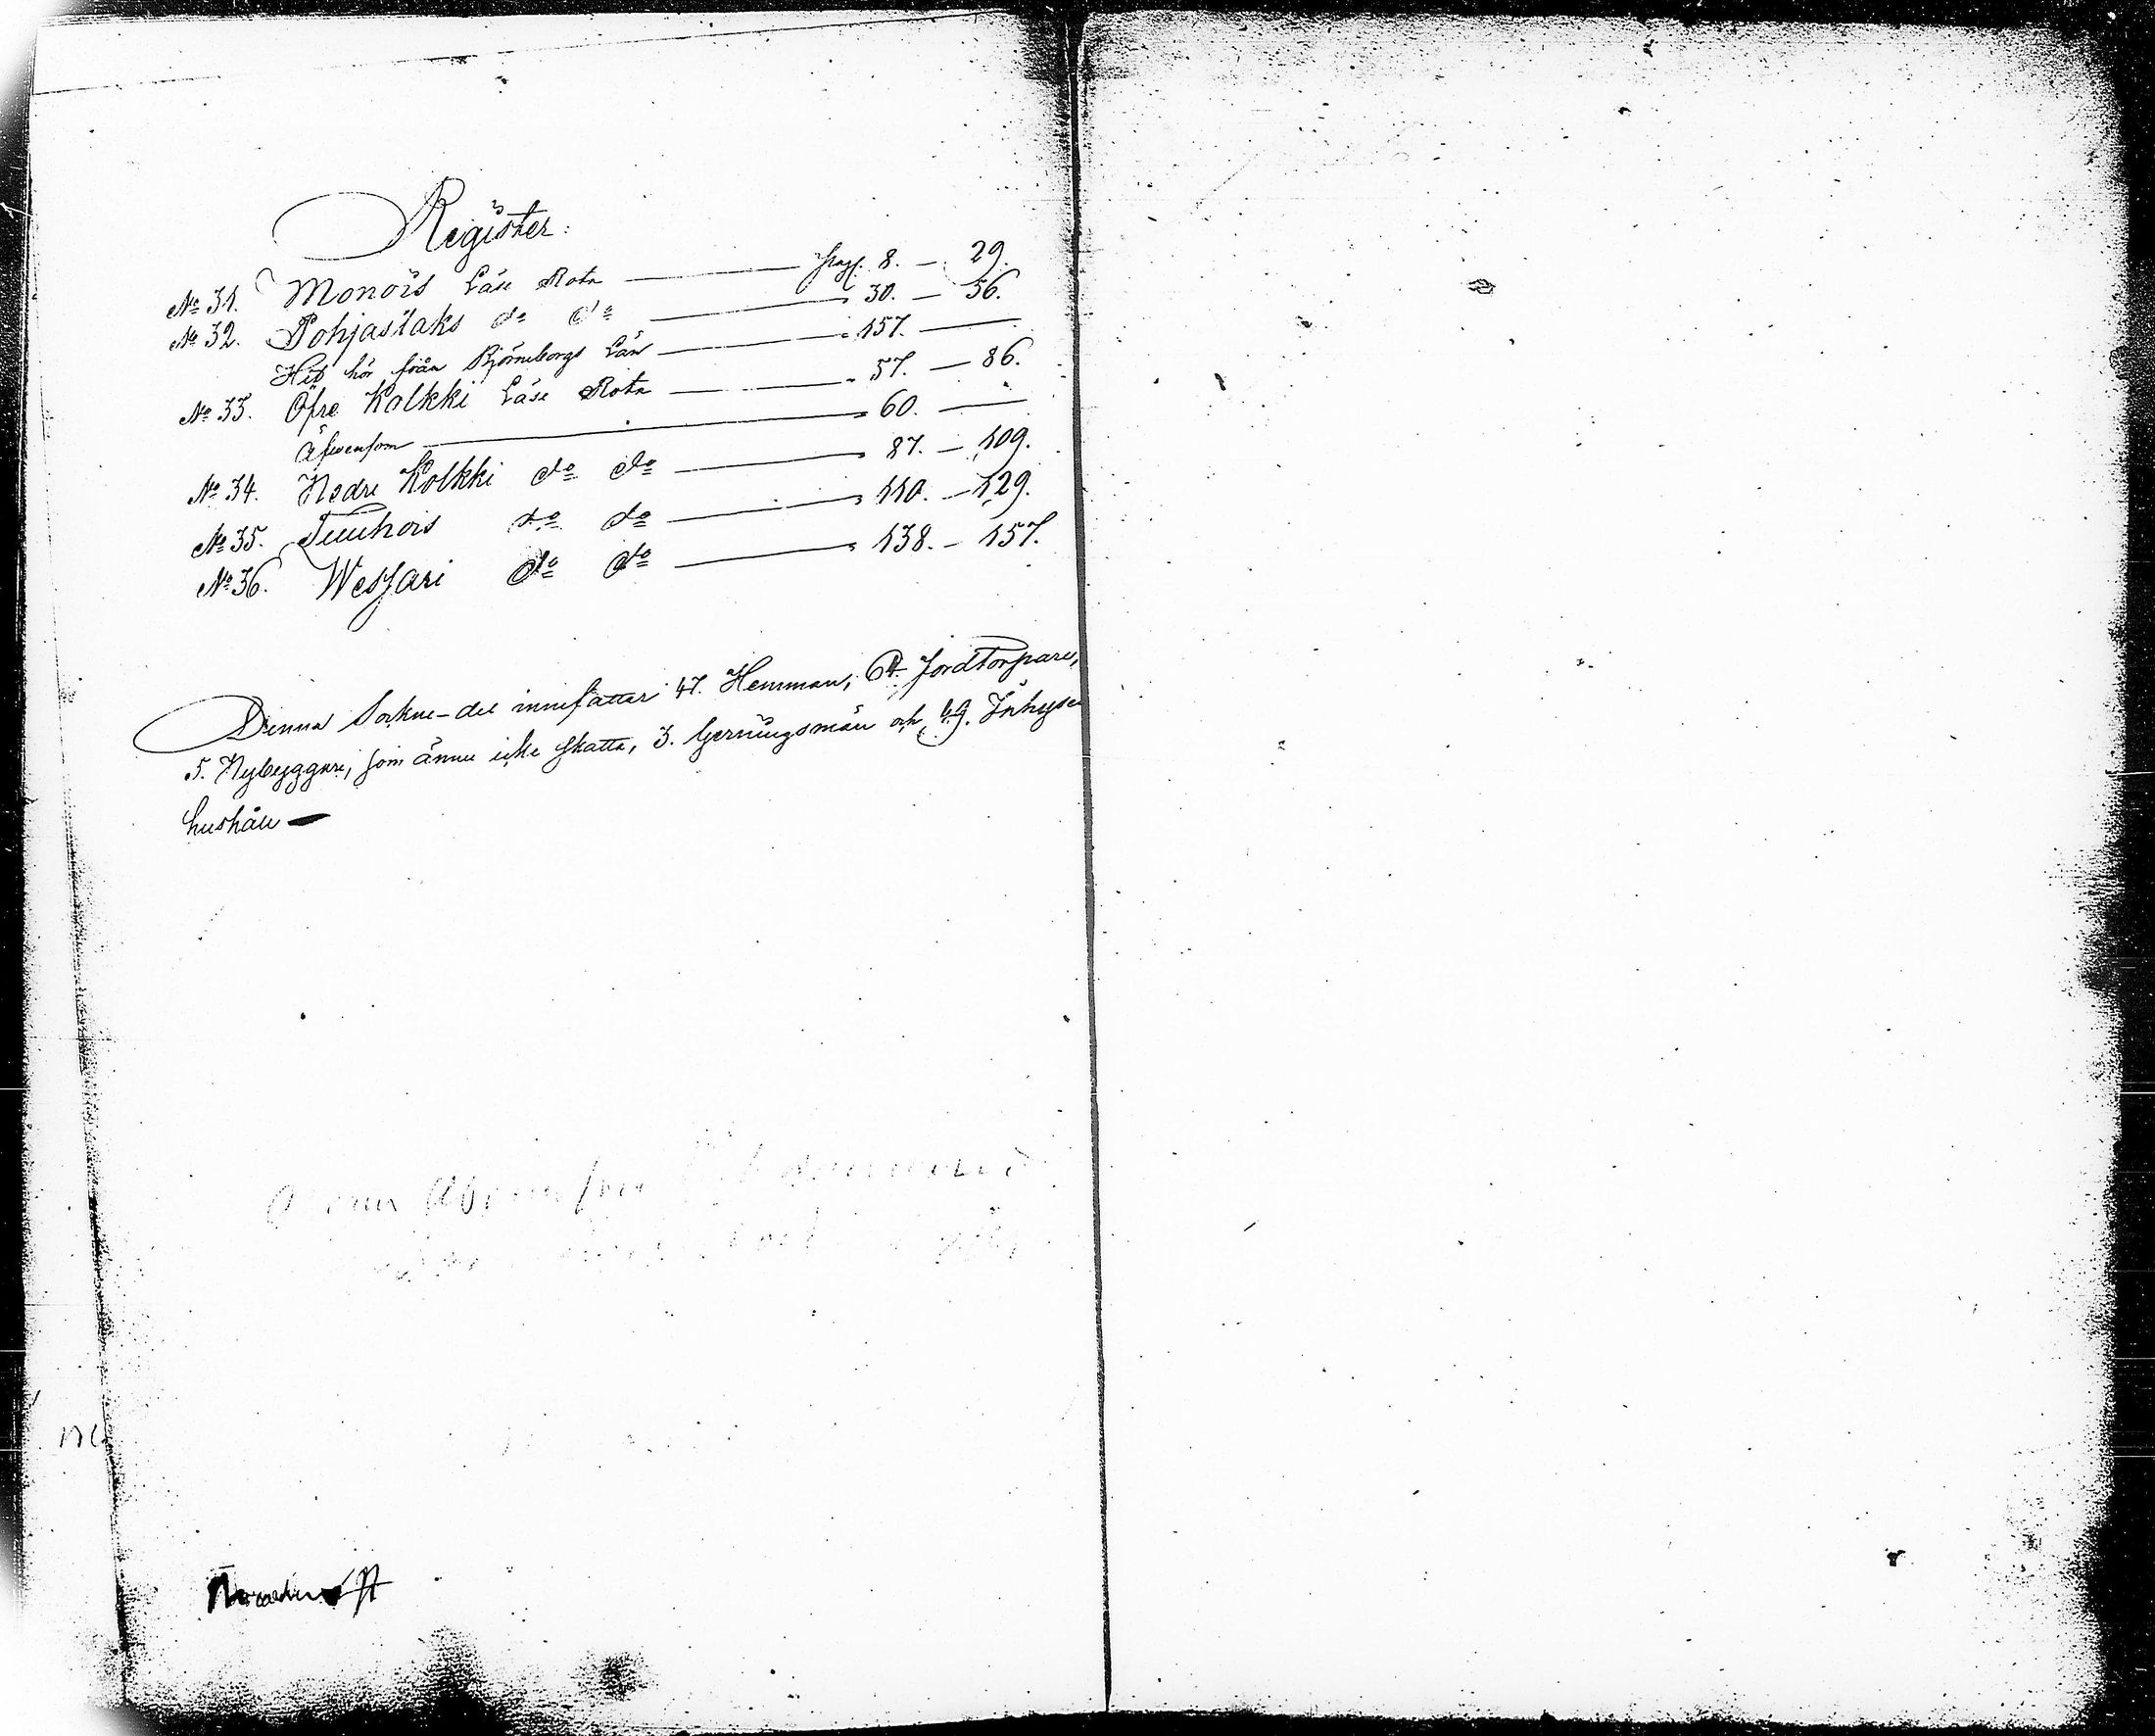 Register.
No 31. Monois Läse Rota — pag. 8. — 29.
No 32. Pohjaslaks do do — 30. — 56.
Hit hör från Björneborgs Län — 157. —
No 33. Öfre Kolkki Läse Rota — 57. — 86.
Äfwensom — 60. —
No 34. Nedre Kolkki do do — 87. — 109.
No 35. Tuuhois do do — 110. — 129.
No 36. Wesjari do do — 138. — 157.
Denna Sokne-del innefattar 47. Hemman, 64. Jordtorpare,
5. Nybyggare, som ännu icke skatta, 3. Gerningsmän och 49. Inhyses
hushåll —